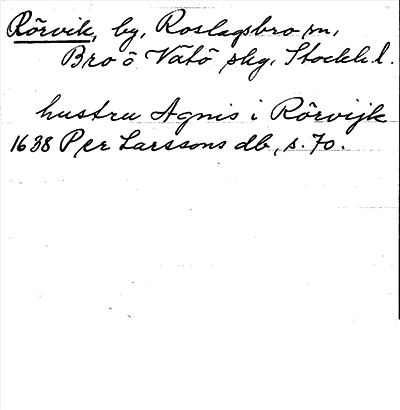 Rörvik, by, Roslagsbro sn,
Bro o Vätö skg, Stockh. l.
hustru Agnis i Rörvijk
1638 Per Larssons db, s. 70.